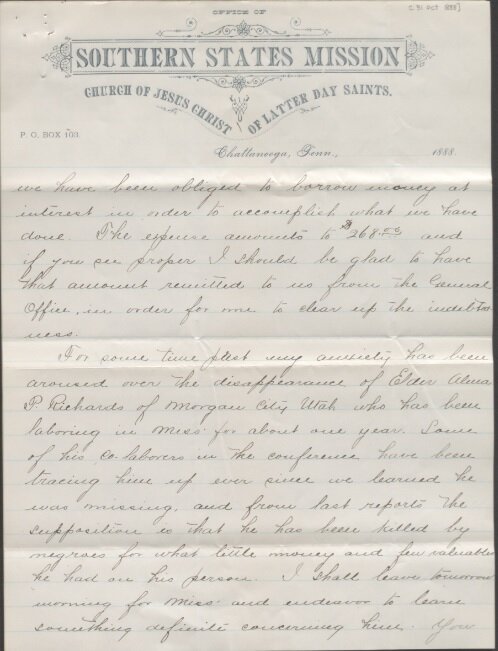 OFFICE OF
[C. 31 OCT 1888]
SOUTHERN STATES MISSION
CHURCH OF JESUS CHRIST OF LATTER DAY SAINTS.
P. O. BOX 103.
Chattanooga, Tenn., 1888.
we have been obliged to borrow money at
interest in order to accomplish what we have
done. The expense amounts to $268.00 and
if you see proper I should be glad to have
that amount remitted to us from the General
Office, in order for me to clear up the indebted
ness.
For some time past my anxiety has been
aroused over the disappearance of Elder Alma
P. Richards of Morgan City Utah who has been
laboring in Miss for about one year. Some
of his co-laborers in the conference have been
tracing him up ever since we learned he
was missing, and from last reports the
supposition is that he has been killed by
negroes for what little money and few valuables
he had on his person. I shall leave tomorrow
morning for Miss and endeavor to learn
something definite concerning him. You